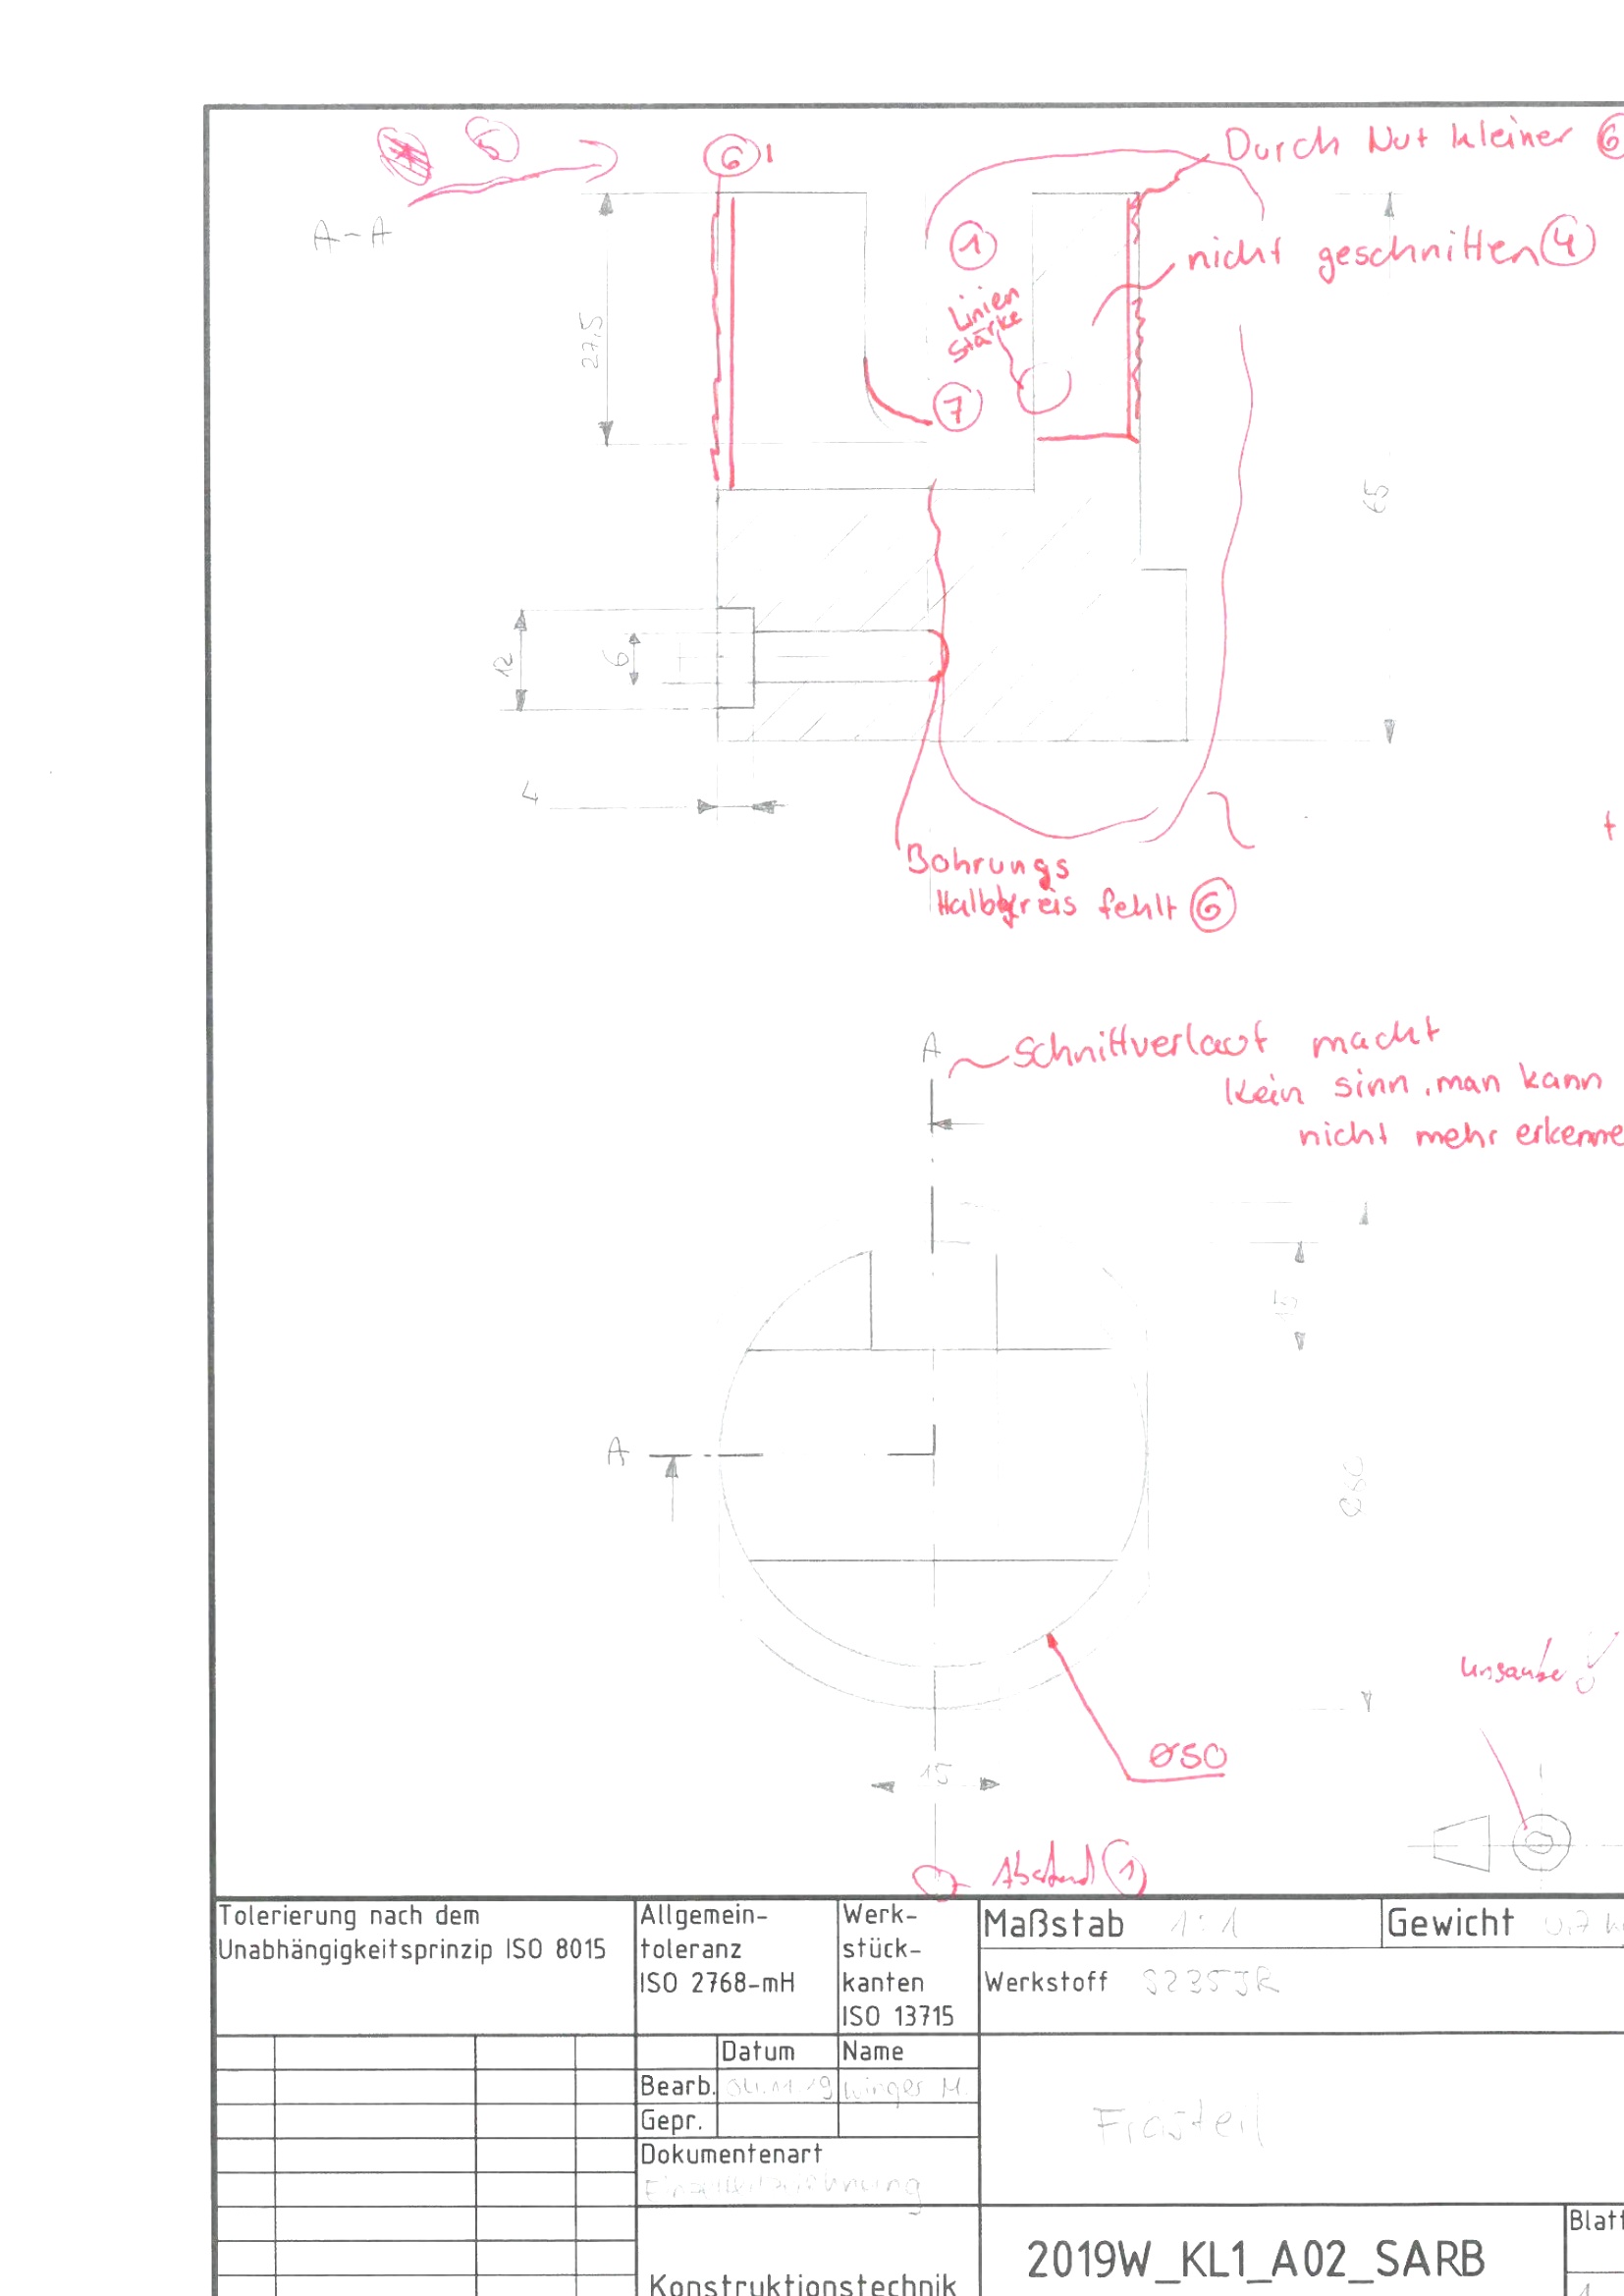 6
6 1
Durch Nut kleiner 6
A-A
1
nicht geschnitten 4
Linien
stärke
27,5
7
65
12
6
4
Bohrungs
Halbkreis fehlt 6
A
Schnittverlauf macht
kein sinn, man kann
nicht mehr erkenne
15
A
Ø50
unsauber
15
Abstand 1
Tolerierung nach dem
Unabhängigkeitsprinzip ISO 8015
Allgemein-
toleranz
ISO 2768-mH
Werk-
stück-
kanten
ISO 13715
Maßstab 1:1
Gewicht 0,7 k
Werkstoff S235JR
Datum Name
Bearb. 04.11.19 Winger M.
Gepr.
Dokumentenart
Einzelteilzeichnung
Frästeil
Konstruktionstechnik
2019W_KL1_A02_SARB
Blatt
1